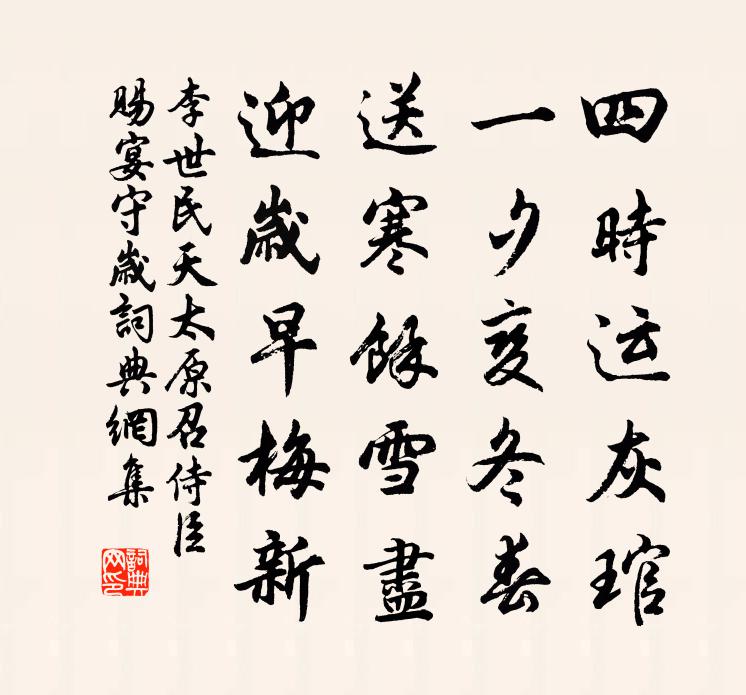 四時运灰琯
一夕变冬春
送寒餘雪盡
迎歲早梅新
李世民天太原召侍臣
賜宴守歲詞典網集
詞典网印